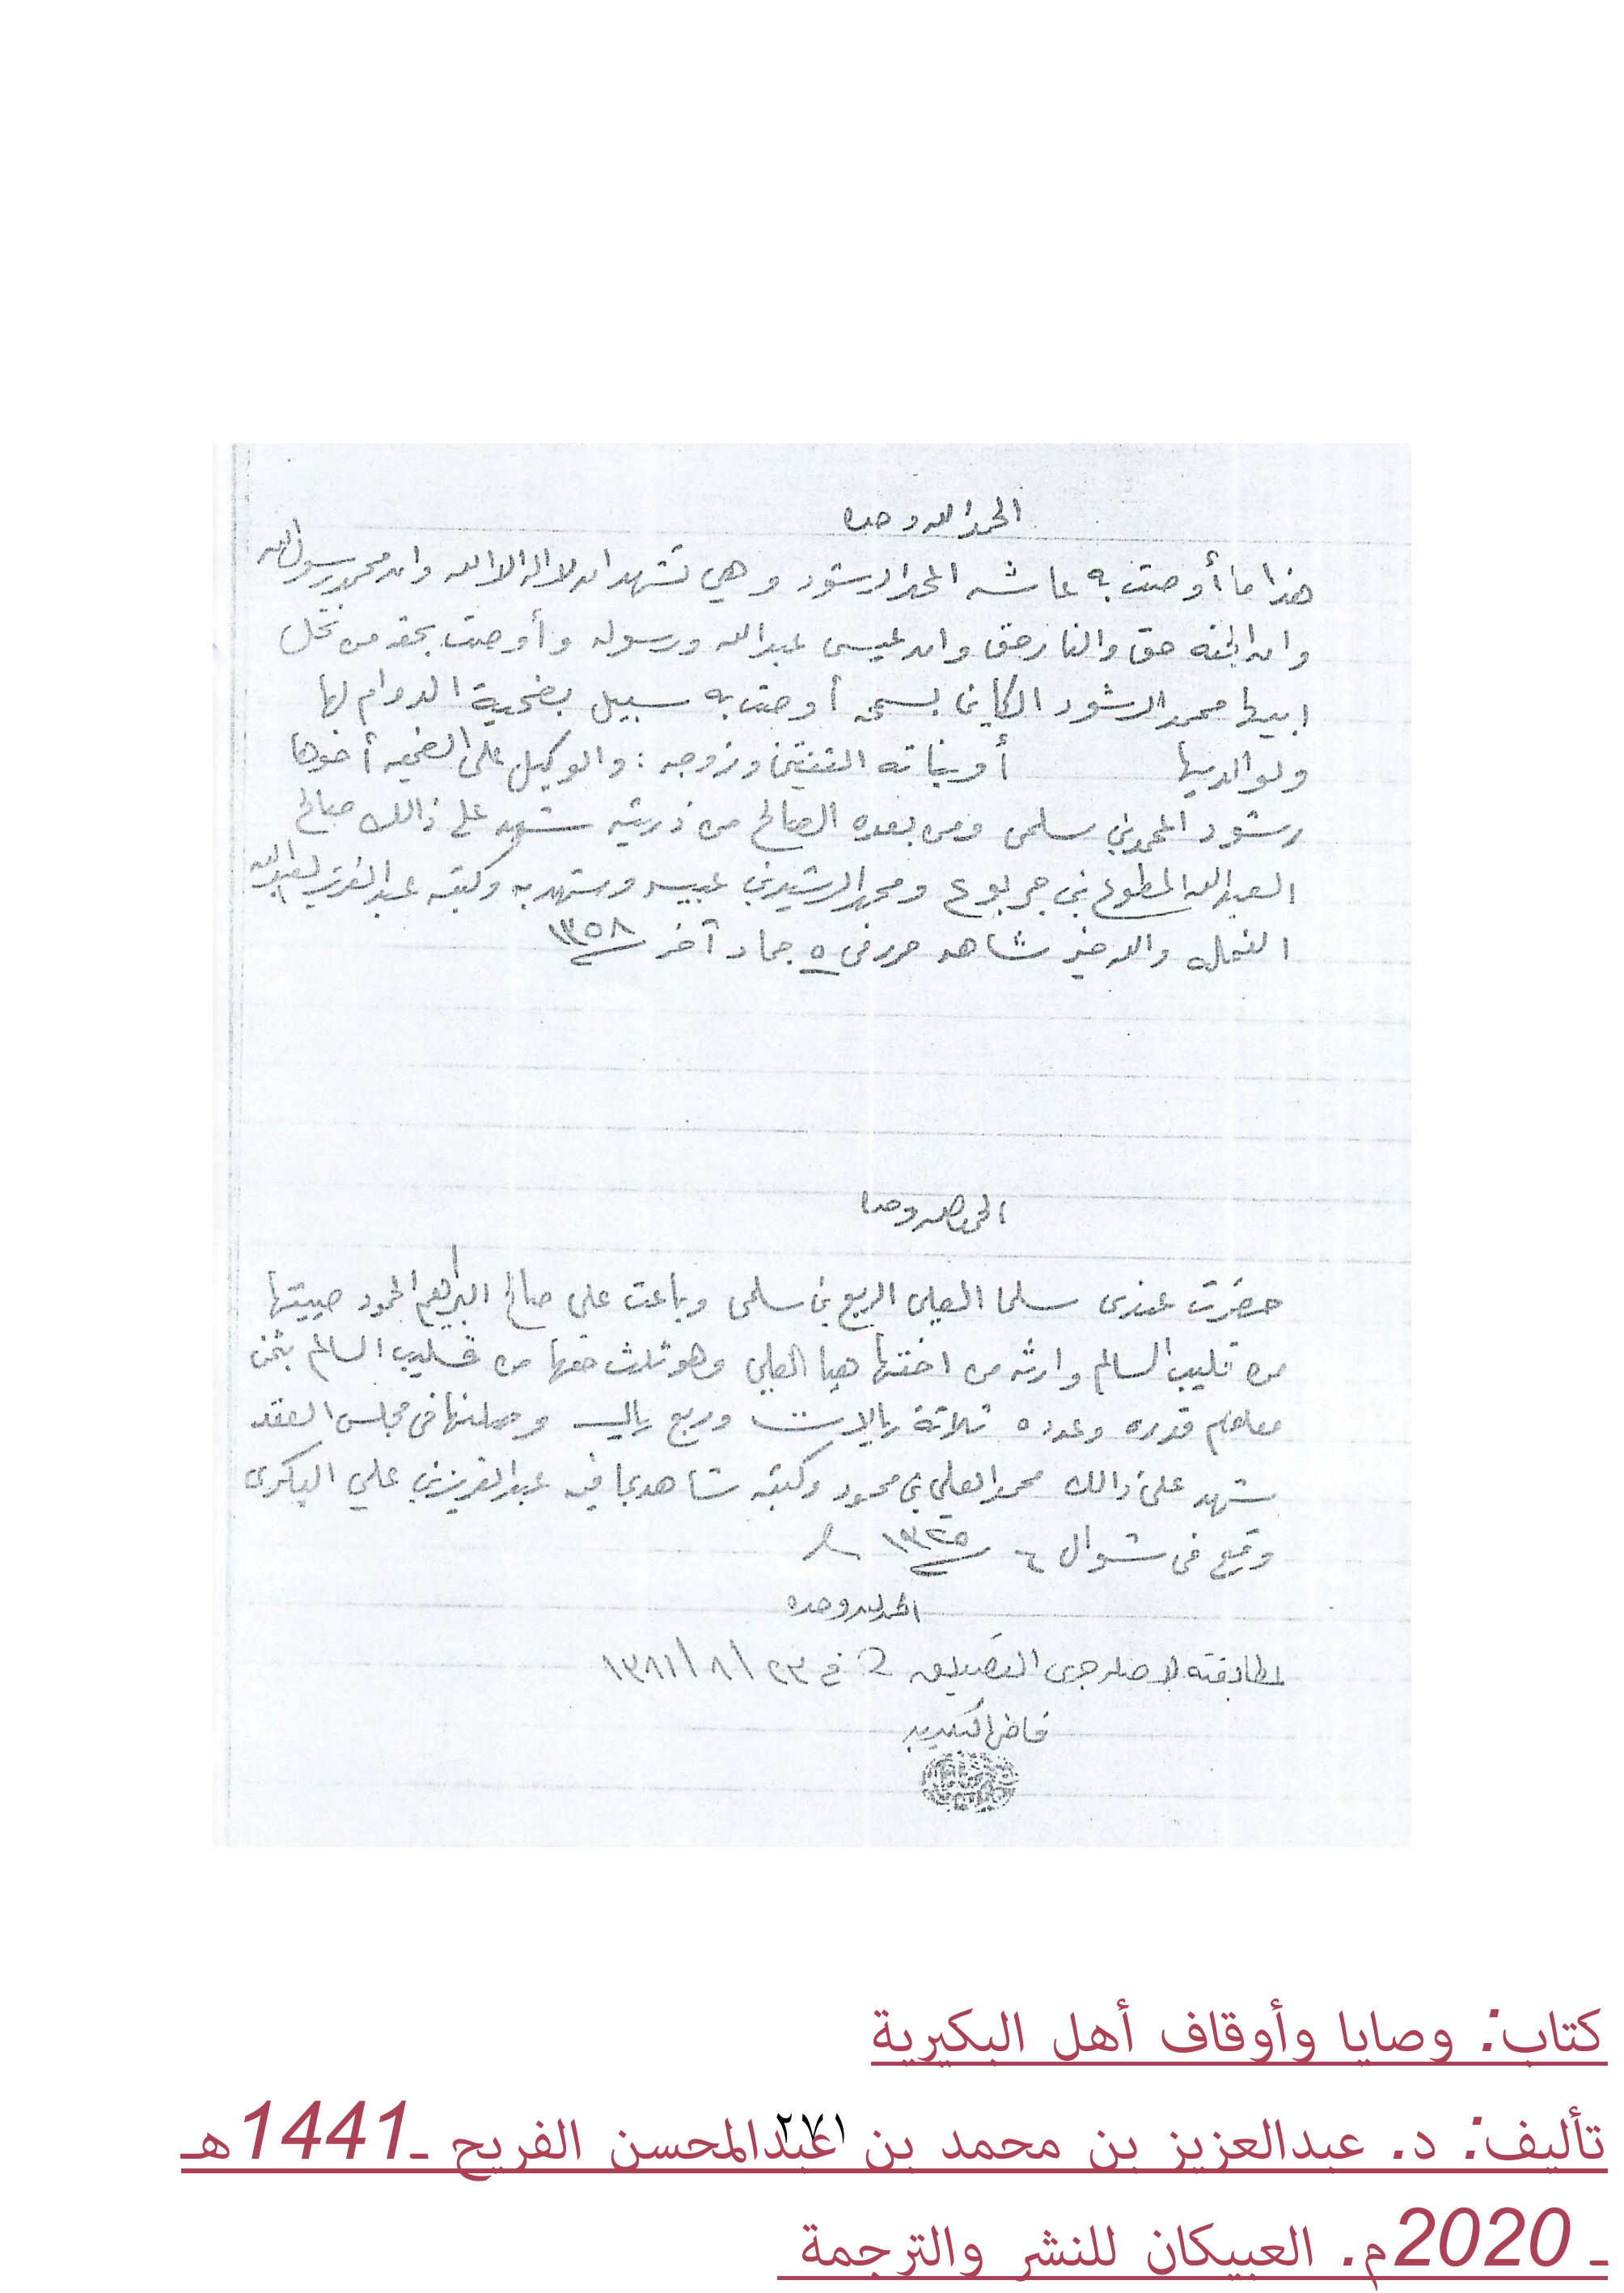 الحمد لله وحده
هذا ما أوصت به عاشه المحمد الرشود وهي تشهد ان لا اله الا الله وان محمد رسول الله
وان الجنه حق والنار حق وان عيسى عبدالله ورسوله وأوصت بحقه من نخل
ابيها محمد الرشود الكاين أوصت به سبيل بضحية الدوام لها
ولوالديها أو بناته الثنتين وزوجه : والوكيل على الضحيه أخوها
رشود المحمد بن سلمى ومن بعده الصالح من ذريته شهد على ذالك صالح
العبدالله المطوع بن جربوع ومحمد الرشيد بن عبيه وشهد به وكتبه عبدالعزيز العبدالله
والله خير شاهد حرر في ٥ جماد آخر ١٣٥٨
الحمد لله وحده
حضرت عندي سلما العلي الربع بن سلمى وباعت على صالح البراهيم الحمود صيبتها
من قليب السالم وارثه من اختها هيا العلي وهو ثلث حقها من قليب السالم بثمن
معلوم قدره وعدده ثلاثة ريالات وربع ريال وصلنها في مجلس العقد
شهد على ذالك محمد العلي بن محمود وكتبه شاهد بما فيه عبدالعزيز بن علي البكري
وقع في شوال ٦ ١٣٢٥
الحمد لله وحده
لمطابقته لاصله جرى التصديق في ٢٣ / ٨ / ١٣٨١
قاضي البكيرية
كتاب: وصايا وأوقاف أهل البكيرية
تأليف: د. عبدالعزيز بن محمد بن عبدالمحسن الفريح ـ1441هـ
٢٧١
ـ 2020م. العبيكان للنشر والترجمة